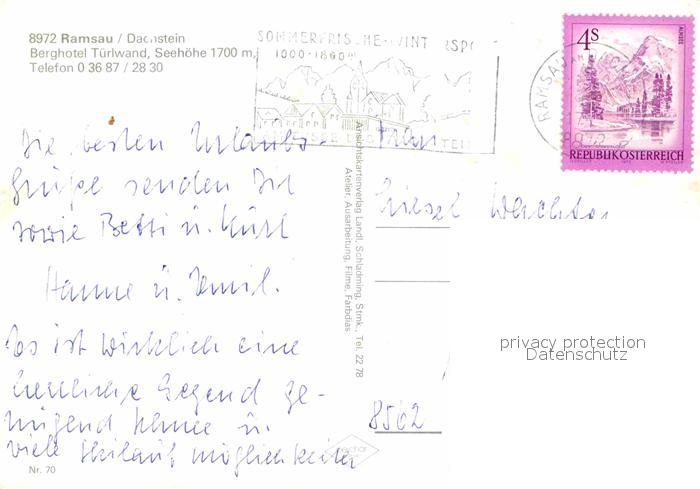 8972 Ramsau / Dachstein
Berghotel Türlwand, Seehöhe 1700 m,
Telefon 0 36 87 / 28 30
SOMMERFRISCHE-WINTERSPO
1000-1800
4S
ALMSEE
REPUBLIK ÖSTERREICH
RAMSAU AM DACH
Die besten Urlaubs-
grüße senden Dir
sowie Betti u. Kurt
Hanne u. Emil.
Es ist wirklich eine
herrliche Gegend ge-
nügend Schnee u.
viele Skilaufmöglichkeiten
Nr. 70
Ansichtskartenverlag Landl, Schladming, Stmk., Tel. 22 78
Atelier, Ausarbeitung, Filme, Farbdias
Frau
Liesel Wachter
privacy protection
Datenschutz
8562